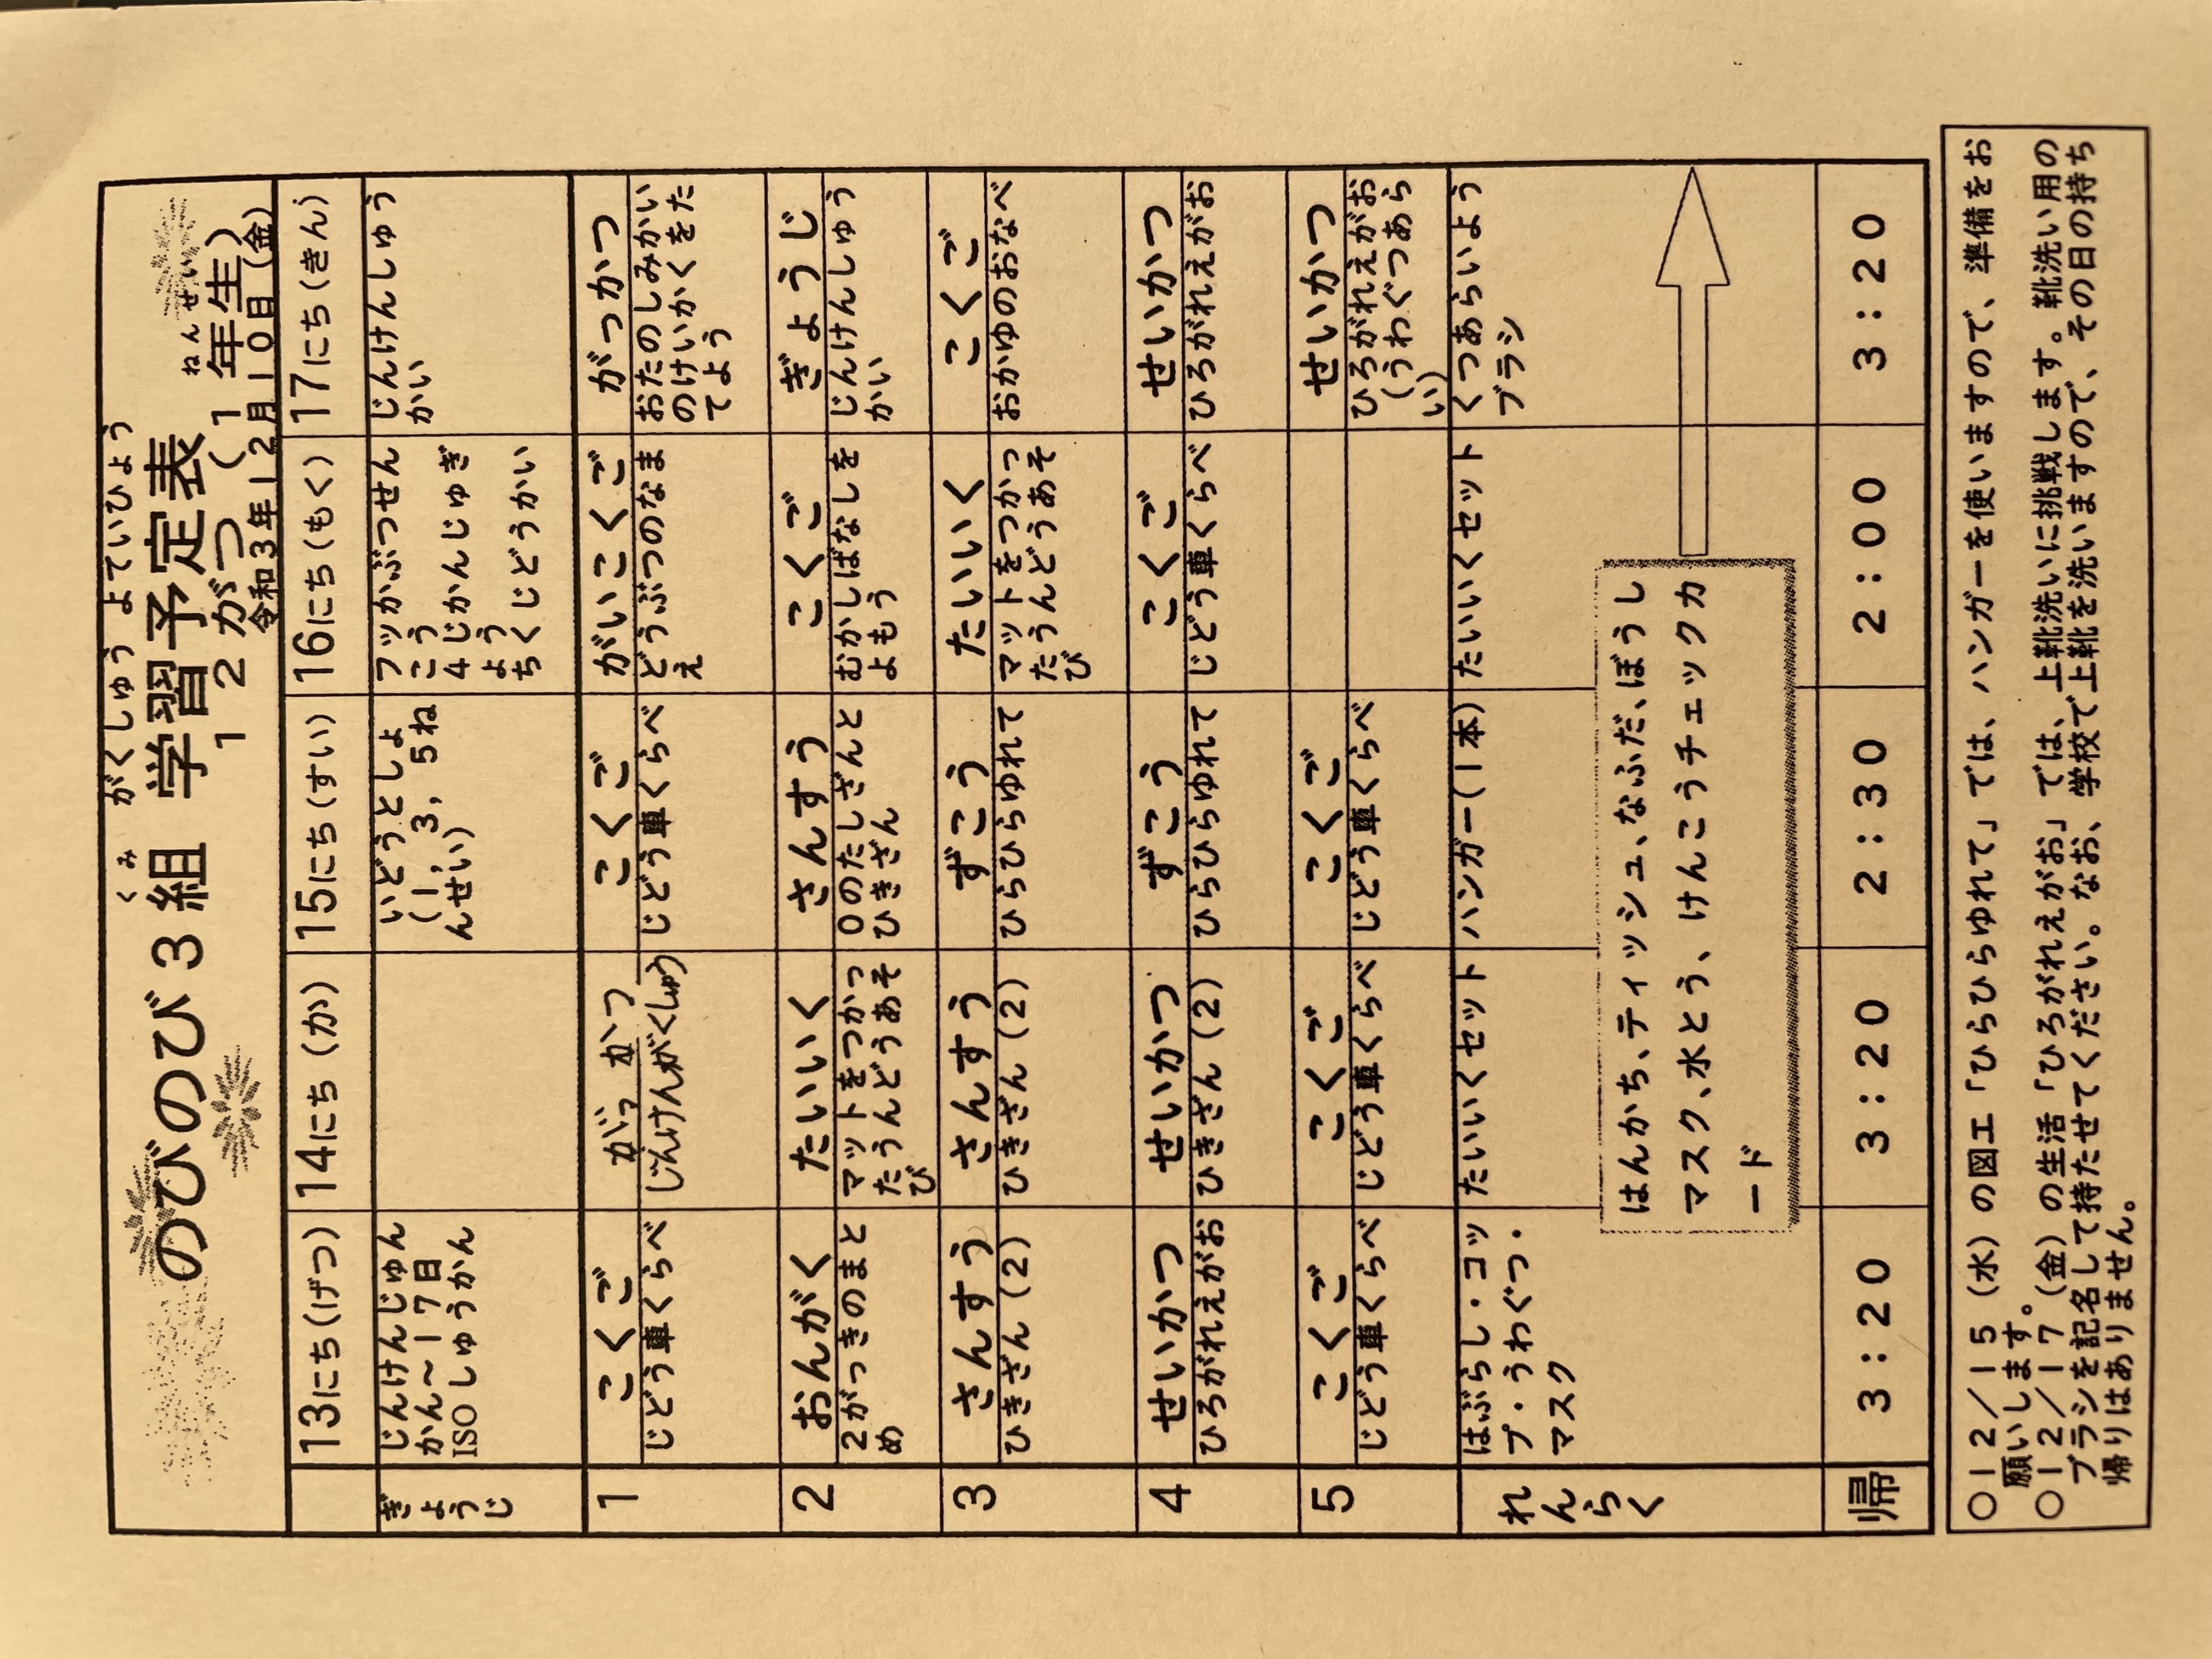 くみ がくしゅう よていひょう
のびのび３組 学習予定表
ねんせい
１２がつ（１年生）
令和３年１２月１０日（金）
13にち（げつ）
14にち（か）
15にち（すい）
16にち（もく）
17にち（きん）
ぎょうじ
じんけんじゅん
かん～１７日
ISOしゅうかん
いどうとしょ
（１，３，５ね
んせい）
フッかぶつせん
こう
４じかんじゅぎ
ょう
ちくじどうかい
じんけんしゅう
かい
1
こくご
じどう車くらべ
がっかつ
じんけんがくしゅう
こくご
じどう車くらべ
がいこくご
どうぶつのなま
え
がっかつ
おたのしみかい
のけいかくをた
てよう
2
おんがく
２がっきのまと
め
たいいく
マットをつかっ
たうんどうあそ
び
さんすう
０のたしざんと
ひきざん
こくご
むかしばなしを
よもう
ぎょうじ
じんけんしゅう
かい
3
さんすう
ひきざん（２）
さんすう
ひきざん（２）
ずこう
ひらひらゆれて
たいいく
マットをつかっ
たうんどうあそ
び
こくご
おかゆのおなべ
4
せいかつ
ひろがれえがお
せいかつ
ひきざん（２）
ずこう
ひらひらゆれて
こくご
じどう車くらべ
せいかつ
ひろがれえがお
5
こくご
じどう車くらべ
こくご
じどう車くらべ
こくご
じどう車くらべ
せいかつ
ひろがれえがお
（うわぐつあら
い）
れんらく
はぶらし・コッ
プ・うわぐつ・
マスク
たいいくセット
ハンガー（１本）
たいいくセット
くつあらいよう
ブラシ
はんかち、ティッシュ、なふだ、ぼうし
マスク、水とう、けんこうチェックカ
ード
帰
３：２０
３：２０
２：３０
２：００
３：２０
○１２／１５（水）の図工「ひらひらゆれて」では、ハンガーを使いますので、準備をお
願いします。
○１２／１７（金）の生活「ひろがれえがお」では、上靴洗いに挑戦します。靴洗い用の
ブラシを記名して持たせてください。なお、学校で上靴を洗いますので、その日の持ち
帰りはありません。